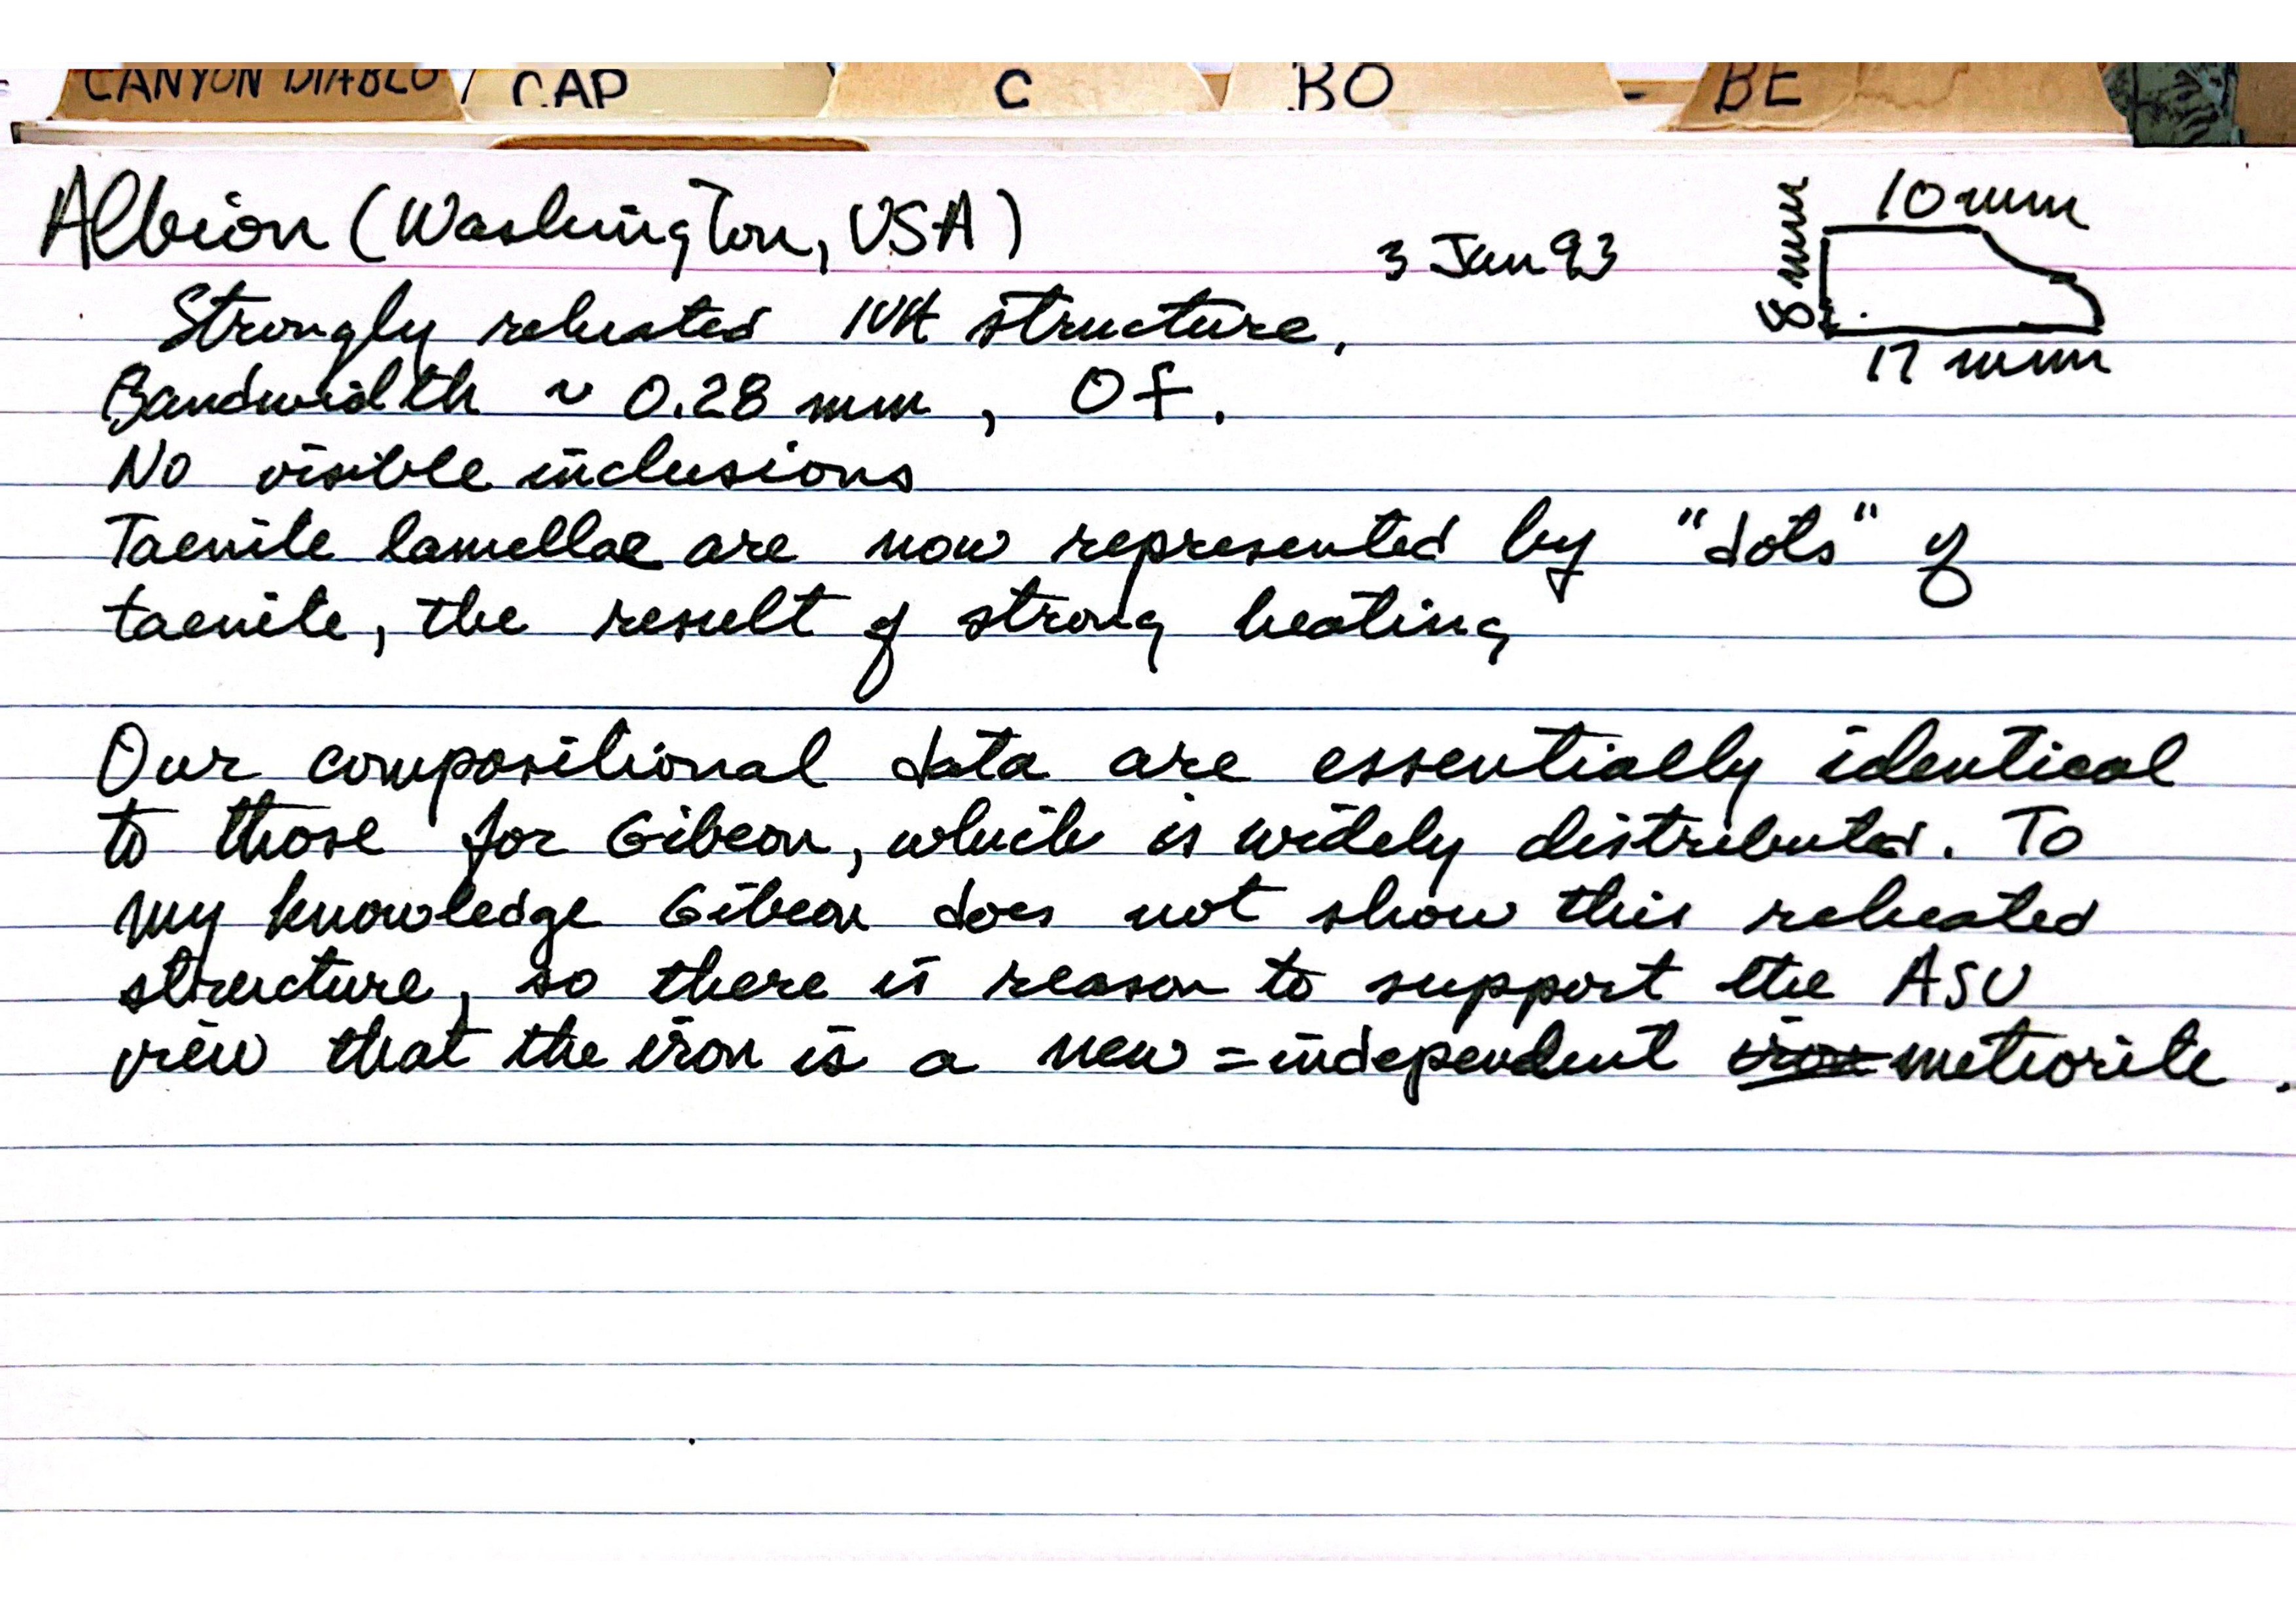 CANYON DIABLO CAP C BO BE
Albion (Washington, USA)
3 Jan 93
10 mm
8 mm
17 mm
Strongly reheated IVA structure.
Bandwidth ~ 0.28 mm, Of.
No visible inclusions
Taenite lamellae are now represented by "dots" of
taenite, the result of strong heating
Our compositional data are essentially identical
to those for Gibeon, which is widely distributed. To
my knowledge Gibeon does not show this reheated
structure, so there is reason to support the ASU
view that the iron is a new = independent iron meteorite.